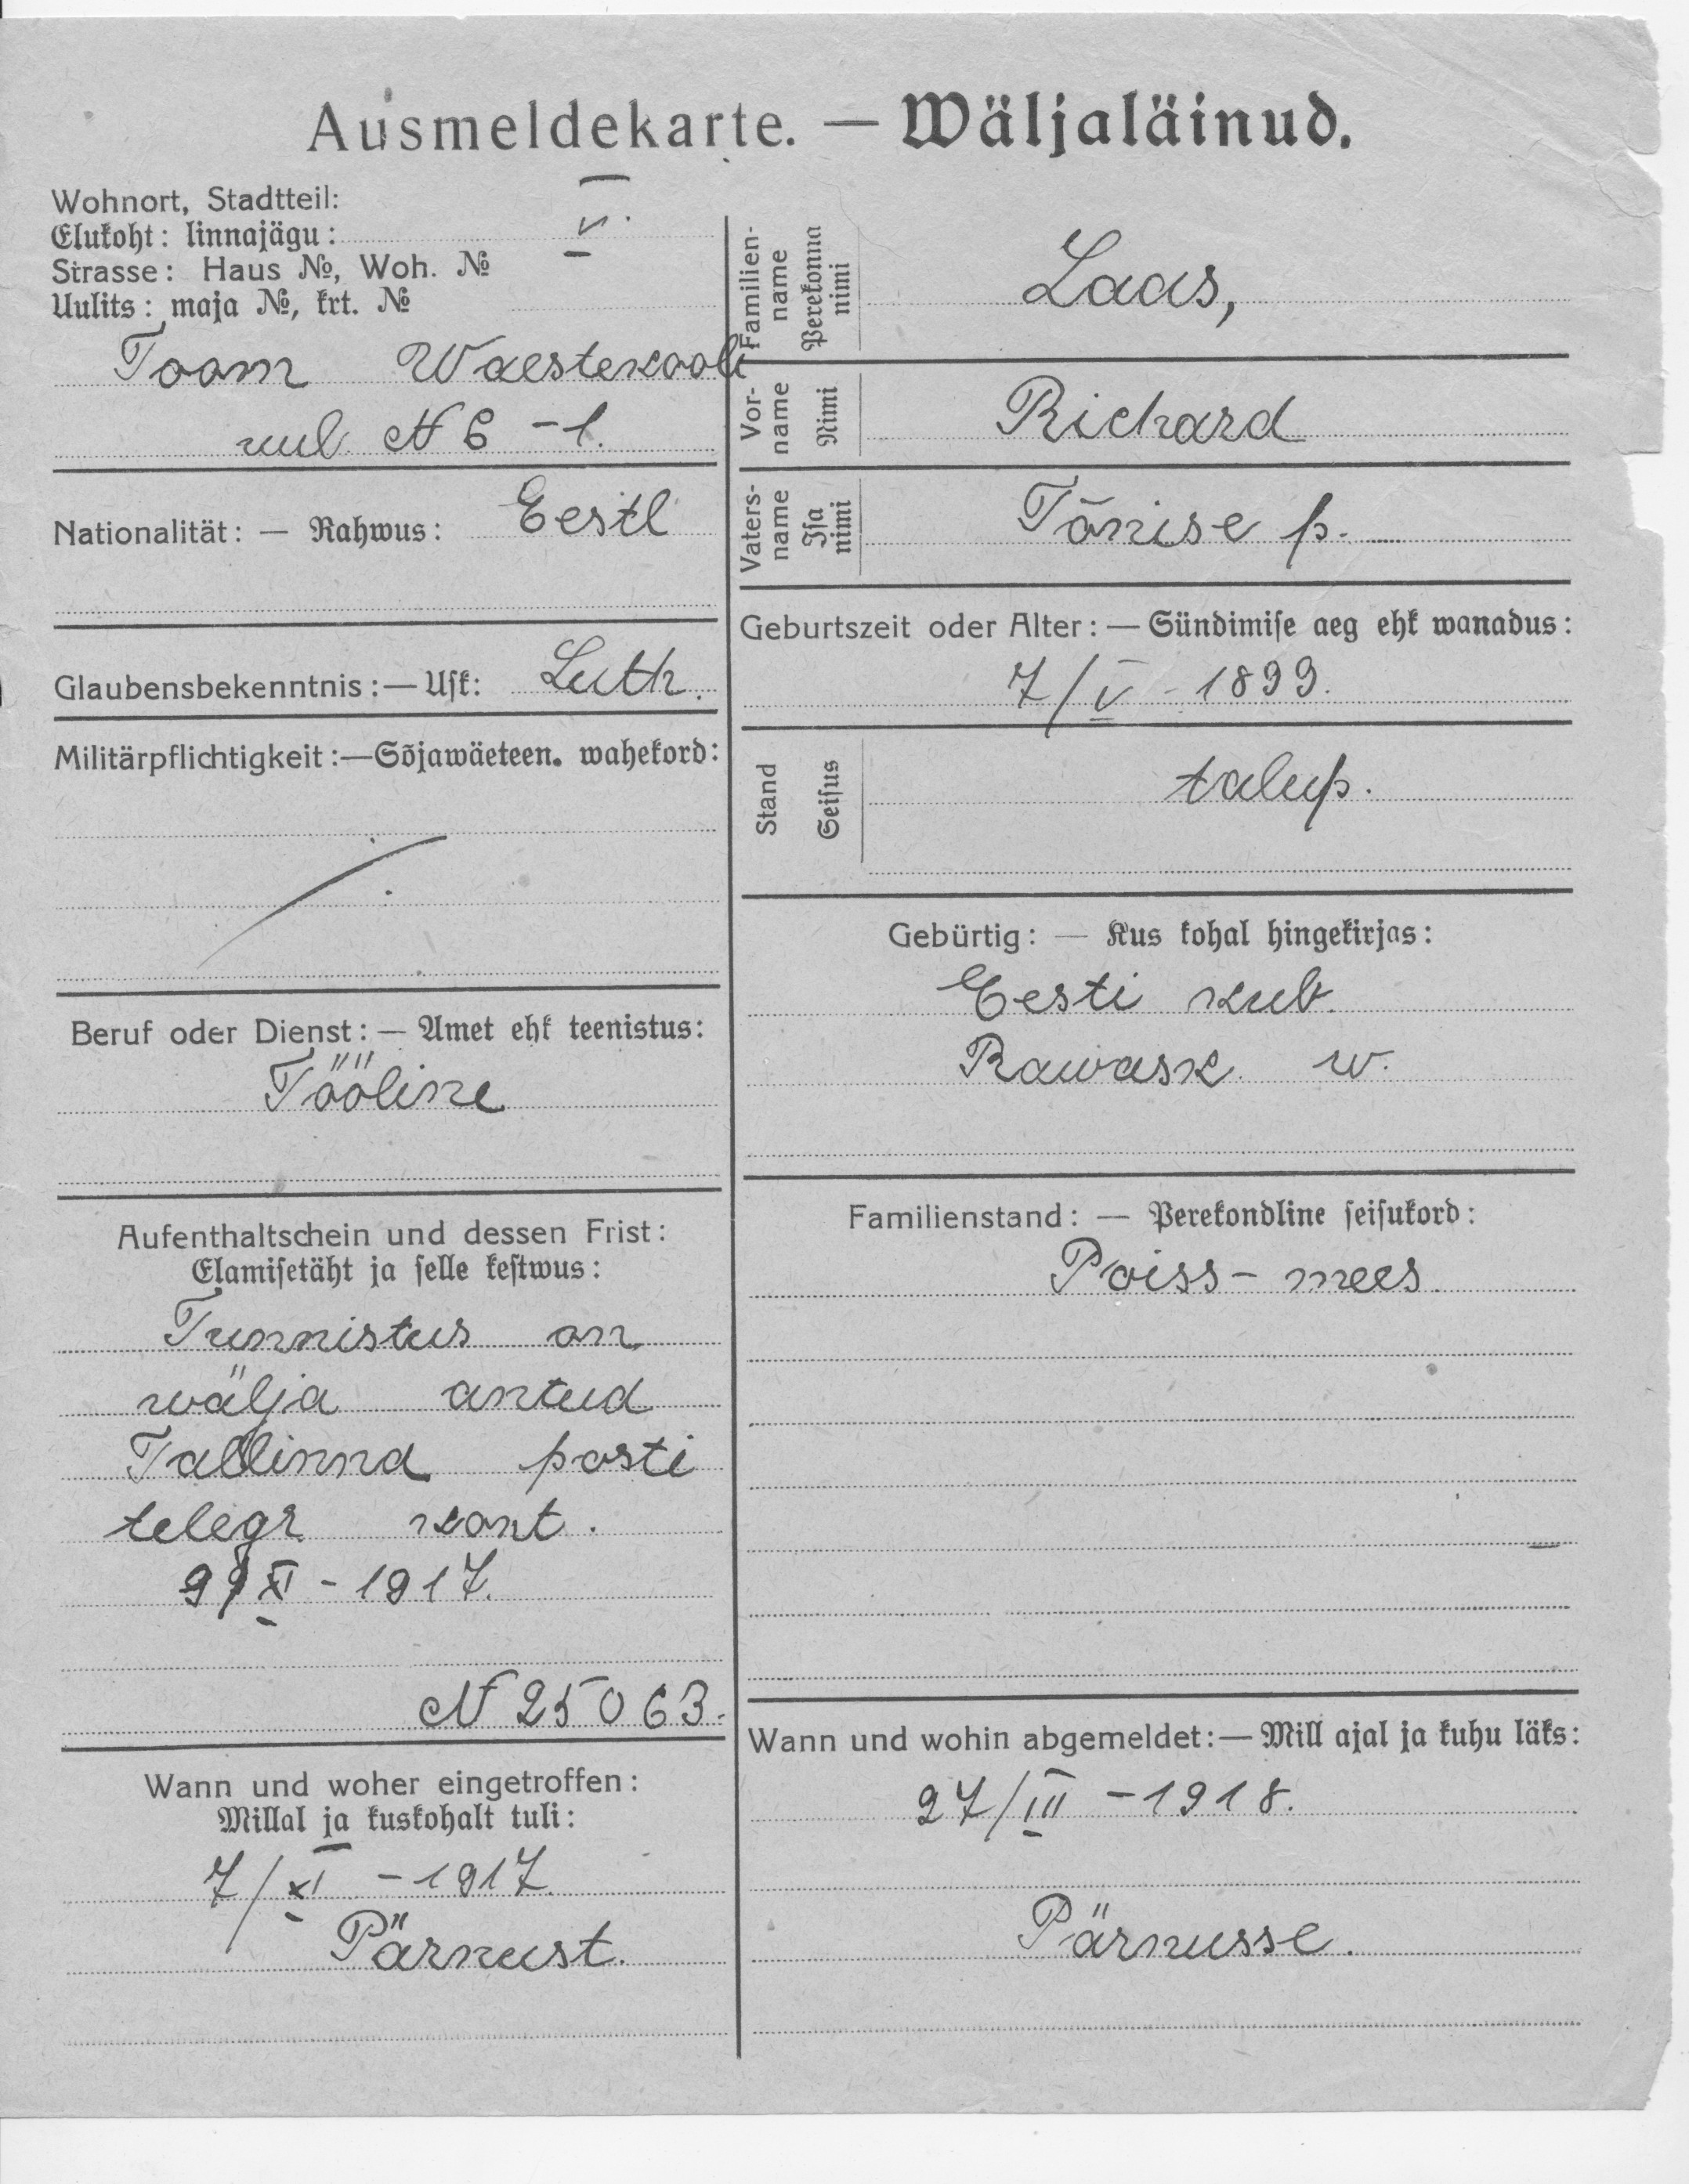 Ausmeldekarte. — Wäljaläinud.
Wohnort, Stadtteil:
Elukoht: linnajägu: V.
Strasse: Haus №, Woh. №
Uulits: maja №, krt. №
Toom Waestekooli
uul. N 6 - 1.
Nationalität: — Rahwus: Eestl
Glaubensbekenntnis: — Usk: Luth.
Militärpflichtigkeit: — Sõjawäeteen. wahekord:
Beruf oder Dienst: — Amet ehk teenistus:
Tööline
Aufenthaltschein und dessen Frist:
Elamisetäht ja selle kestwus:
Tunnistus on
wälja antud
Tallinna posti
telegr kont.
9/XI - 1917.
N 25063.
Wann und woher eingetroffen:
Millal ja kuskohalt tuli:
7/XI - 1917.
Pärnust.
Familien-name Perekonna nimi Laas,
Vor-name Nimi Richard
Vaters-name Isa nimi Tõnise p.
Geburtszeit oder Alter: — Sündimise aeg ehk wanadus:
7/V - 1899.
Stand Seisus talup.
Gebürtig: — Kus kohal hingekirjas:
Eesti kub.
Rawask. w.
Familienstand: — Perekondline seisukord:
Poiss-mees.
Wann und wohin abgemeldet: — Mill ajal ja kuhu läks:
27/III - 1918.
Pärnusse.